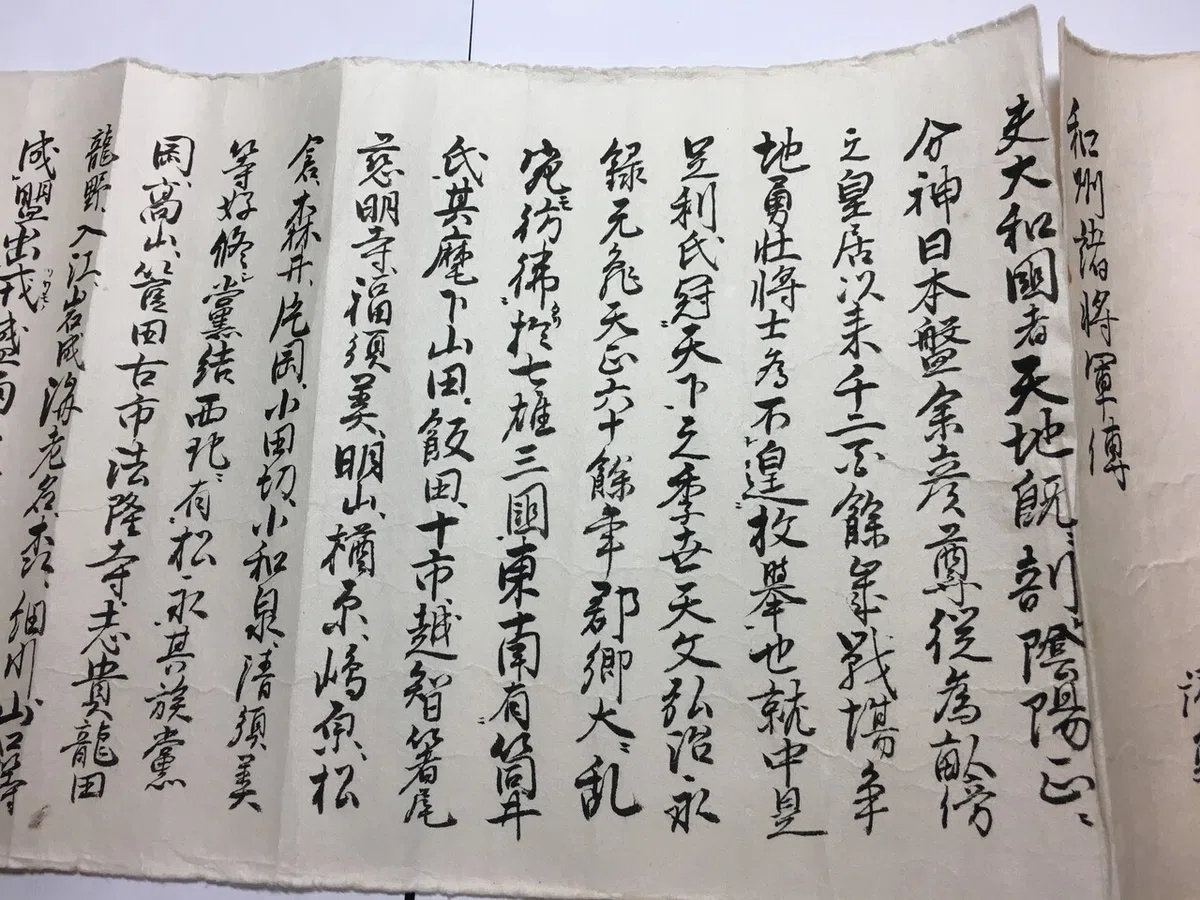 和州諸将軍傳
夫大和國者天地既ニ剖レ陰陽正ニ
分神日本盤余彦尊従為畝傍
之皇居以来千二百餘歳戦場争
地勇壮将士為不遑枚擧也就中是
足利氏冠天下之季世天文弘治永
録元亀天正六十餘年郡郷大ニ乱
宛モ彷彿タリ於七雄三國東南有筒井
氏其麾下山田、飯田、十市、越智箸尾
慈明寺福須美、明山、楢原、嶋原、松
倉、森井、片岡、小田切、小和泉、清須美
等好修シ黨結西北ニ有松永其族黨
岡高山、筺田古市法隆寺、志貴龍田
龍野、入江、岩成海老名、森、細川山口等
成盟出戎